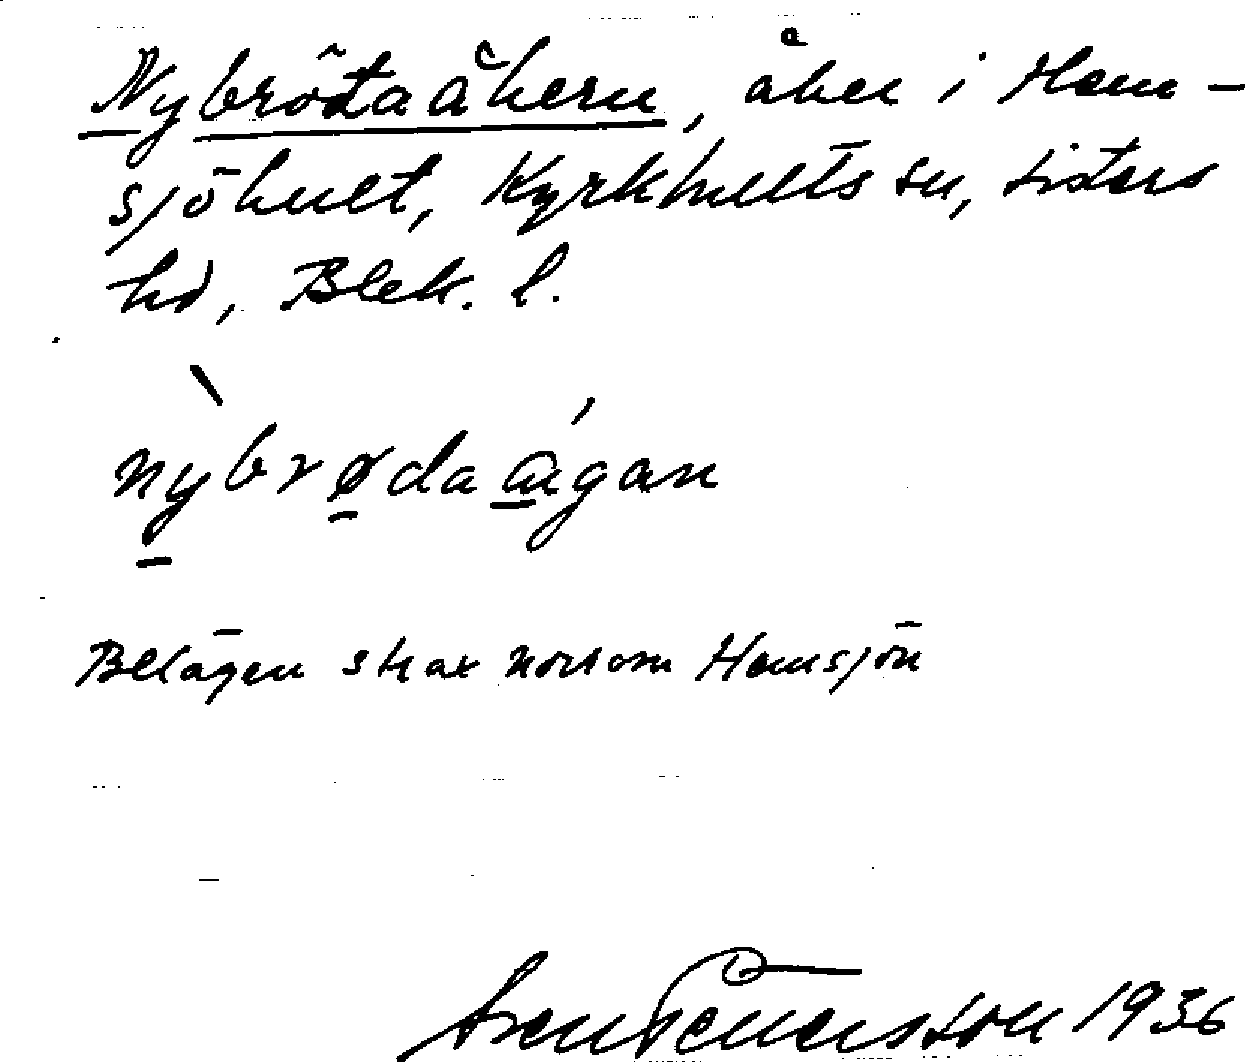 Nybrötaåkern, åker i Hem-
sjöhult, Kyrkhults sn, Listers
hd, Blek. l.
nybrødaågan
Belägen strax norr om Hemsjön
1936